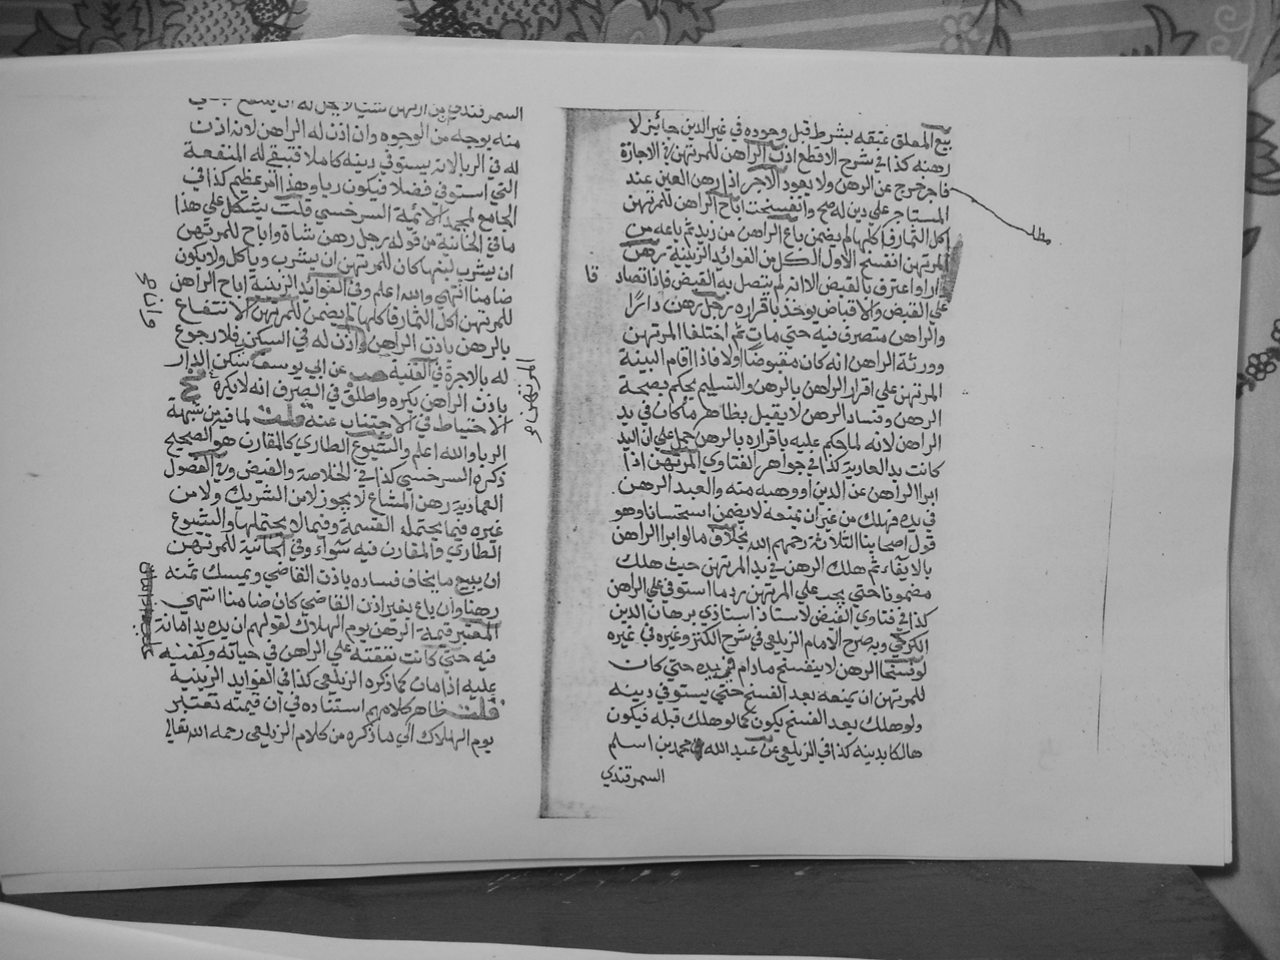 بيع المعلق عتقه بشرط قبل وجوده في غير الدين جائز لا
رهنه كذا في شرح الاقطع اذن الراهن للمرتهن في الاجازة
فاجر خرج عن الرهن ولا يعود الاجر اذا رهن العين عند
المستاجر علي دين له صح وانفسخت اباح الراهن للمرتهن
مطلب
اكل الثمار فاكلها لم يضمن باع الراهن من زيد ثم باعه من
المرتهن انفسخ الاول الكل من الفوائد الزينية رهن
دارا واعترف بالقبض الا انه لم يتصل به القبض فاذا تصادقا
علي القبض والاقباض يوخذ باقراره رجل رهن دارا
والراهن متصرف فيه حتي مات ثم اختلفا المرتهن
وورثة الراهن انه كان مقبوضا اولا فاذا اقام البينة
المرتهن علي اقرار الراهن بالرهن والتسليم يحكم بصحة
الرهن وفساد الرهن لا يقبل بظاهر ما كان في يد
الراهن لانه لما حكم عليه باقراره بالرهن حمل علي ان اليد
كانت يد العارية كذا في جواهر الفتاوي المرتهن اذا
ابرا الراهن عن الدين او وهبه منه والعبد الرهن
في يده فهلك من غير ان يمنعه لا يضمن استحسانا وهو
قول اصحابنا الثلاثة رحمهم الله بخلاف مالو ابرا الراهن
بالايفاء ثم هلك الرهن في يد المرتهن حيث هلك
مضمونا حتي يجب علي المرتهن رد ما استوفي علي الراهن
كذا في فتاوي الفيض لاستاذ استاذي برهان الدين
الكركي وبه صرح الامام الزيلعي في شرح الكنز وغيره في غيره
لو فسخا الرهن لا ينفسخ مادام في يده حتي كان
للمرتهن ان يمنعه بعد الفسخ حتي يستوفي دينه
ولو هلك بعد الفسخ يكون كما لو هلك قبله فيكون
هالكا بدينه كذا في الزيلعي عن عبد الله محمد بن اسلم
السمرقندي
السمرقندي من ارتهن شيا لا يحل له ان ينتفع
منه بوجه من الوجوه وان اذن له الراهن لانه اذن
له في الربا لانه يستوفي دينه كاملا فتبقي له المنفعة
التي استوفي فضلا فيكون ربا وهذا امر عظيم كذا في
الجامع لمجد الائمة السرخسي قلت يشكل علي هذا
ما في الخانية من قوله رجل رهن شاة واباح للمرتهن
ان يشرب لبنها كان للمرتهن ان يشرب وياكل ولا يكون
ضامنا انتهي والله اعلم وفي الفوائد الزينية اباح الراهن
للمرتهن اكل الثمار فاكلها لم يضمن للمرتهن الانتفاع
بالرهن باذن الراهن اذن له في السكن فلا رجوع
له بالاجرة في القنية عن ابي يوسف سكن الدار
المرتهن
باذن الراهن يكره واطلق في الصرف انه لا يكره
الاحتياط في الاجتناب عنه قلت لما فيه من شبهة
الربا والله اعلم والشيوع الطاري كالمقارن هو الصحيح
ذكره السرخسي كذا في الخلاصة والفيض وفي الفصول
العمادية رهن المشاع لا يجوز لا من الشريك ولا من
غيره فيما يحتمل القسمة وفيما لا يحتملها والشيوع
الطاري والمقارن فيه سواء وفي الخانية للمرتهن
ان يبيع ما يخاف فساده باذن القاضي ويمسك ثمنه
رهنا وان باع بغير اذن القاضي كان ضامنا انتهي
المعتبر قيمة الرهن يوم الهلاك لقولهم ان يده يد امانة
فيه حتي كانت نفقته علي الراهن في حياته وكفنه
عليه اذا مات كما ذكره الزيلعي كذا في الفوايد الزينية
قلت ظاهر كلامهم استناده في ان قيمته تعتبر
يوم الهلاك الي ما ذكره من كلام الزيلعي رحمه الله تعالي